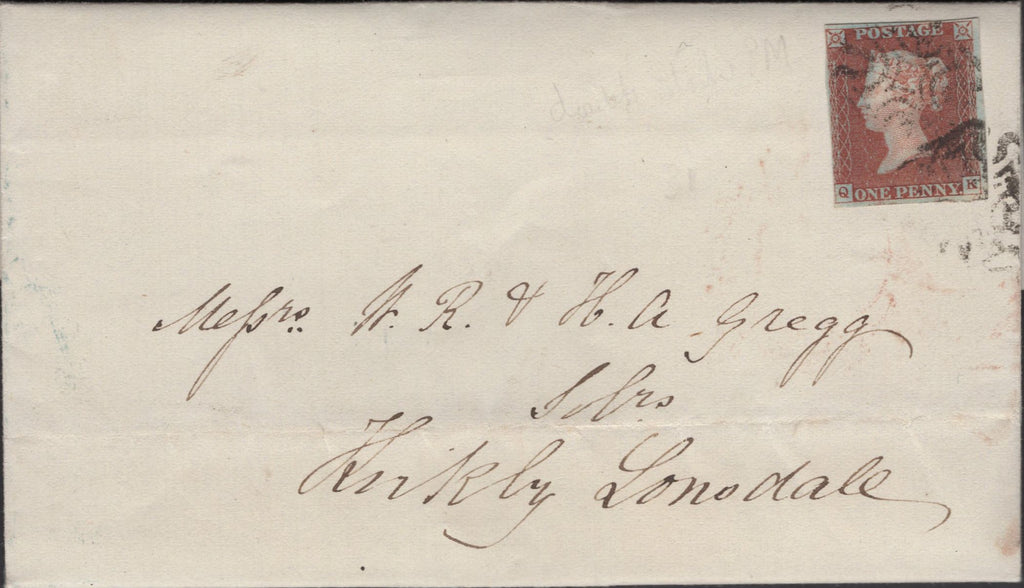 POSTAGE
Q ONE PENNY. K
Messrs. W. R. & H. A Gregg
Solrs
Kirkby Lonsdale